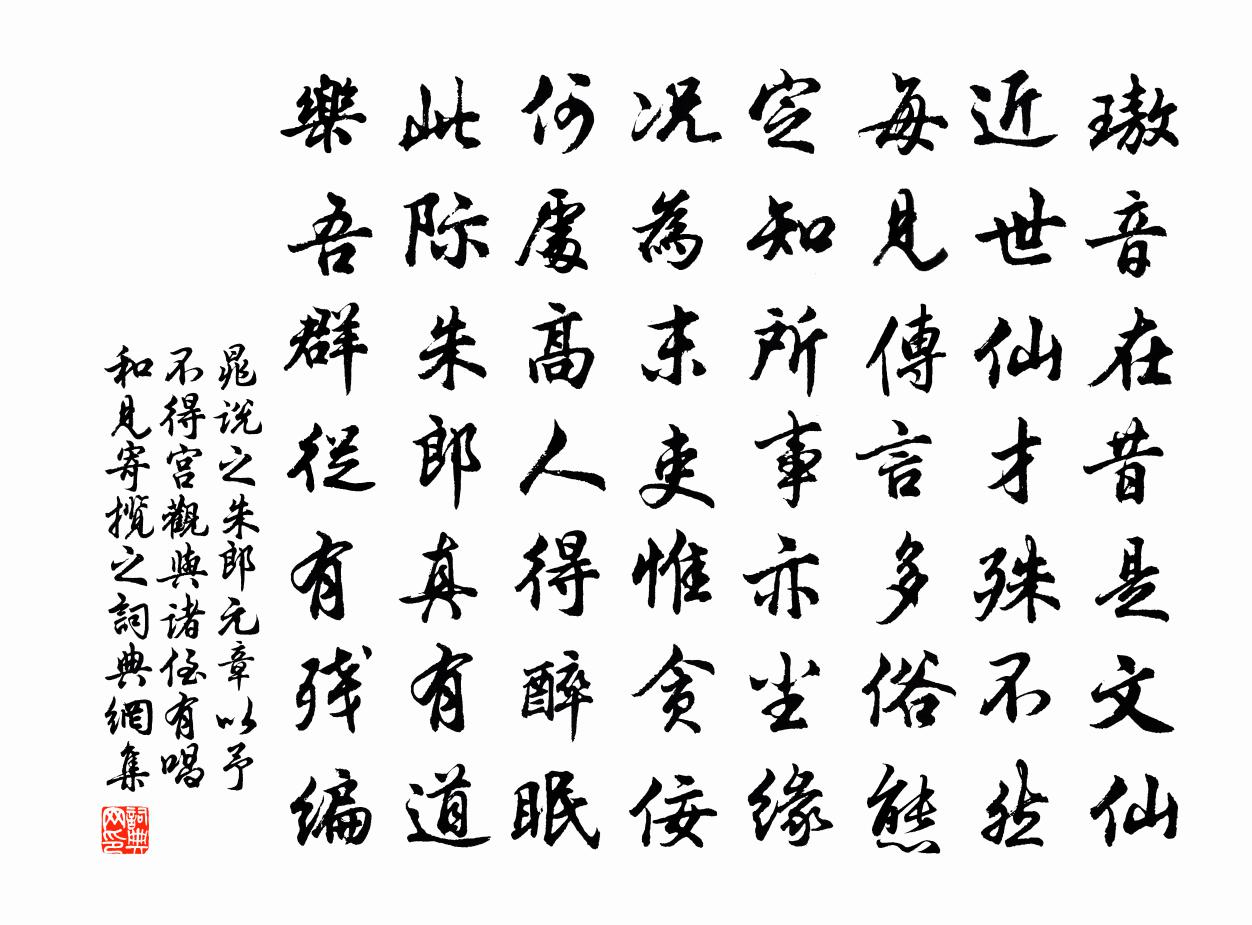 璈音在昔是文仙
近世仙才殊不然
每見傳言多俗態
定知所事亦尘緣
况為末吏惟贪佞
何處高人得醉眠
此际朱郎真有道
樂吾群従有残编
晁说之朱郎元章以予
不得宮觀與诸侄有唱
和見寄揽之詞典網集
詞典
网印